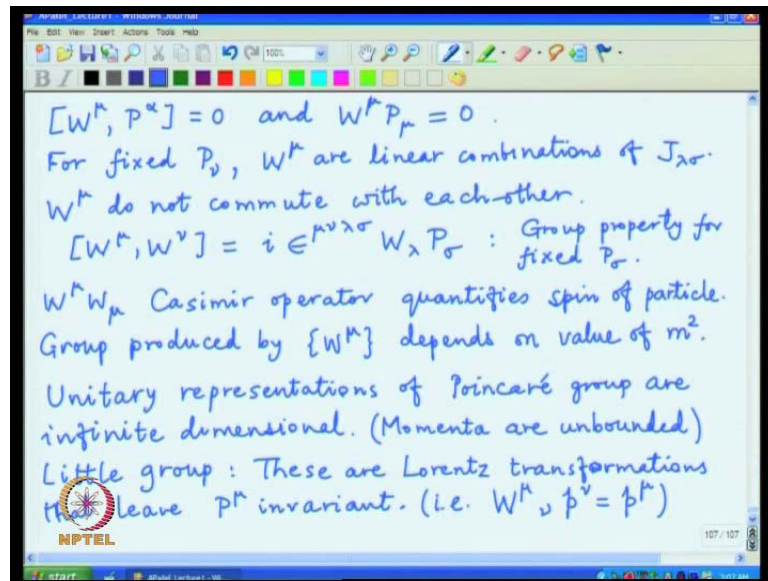 APatel_Lecture1 - Windows Journal
File Edit View Insert Actions Tools Help
100%
B I
[W^μ, P^α] = 0 and W^μ P_μ = 0 .
For fixed P_ν, W^μ are linear combinations of J_λσ.
W^μ do not commute with each-other.
[W^μ, W^ν] = i ∈^μνλσ W_λ P_σ : Group property for fixed P_σ.
W^μ W_μ Casimir operator quantifies spin of particle.
Group produced by {W^μ} depends on value of m².
Unitary representations of Poincaré group are
infinite dimensional. (Momenta are unbounded)
Little group : These are Lorentz transformations
that leave P^μ invariant. (i.e. W^μ_ν p^ν = p^μ)
NPTEL
107 / 107
start
APatel_Lecture1 - Wi...